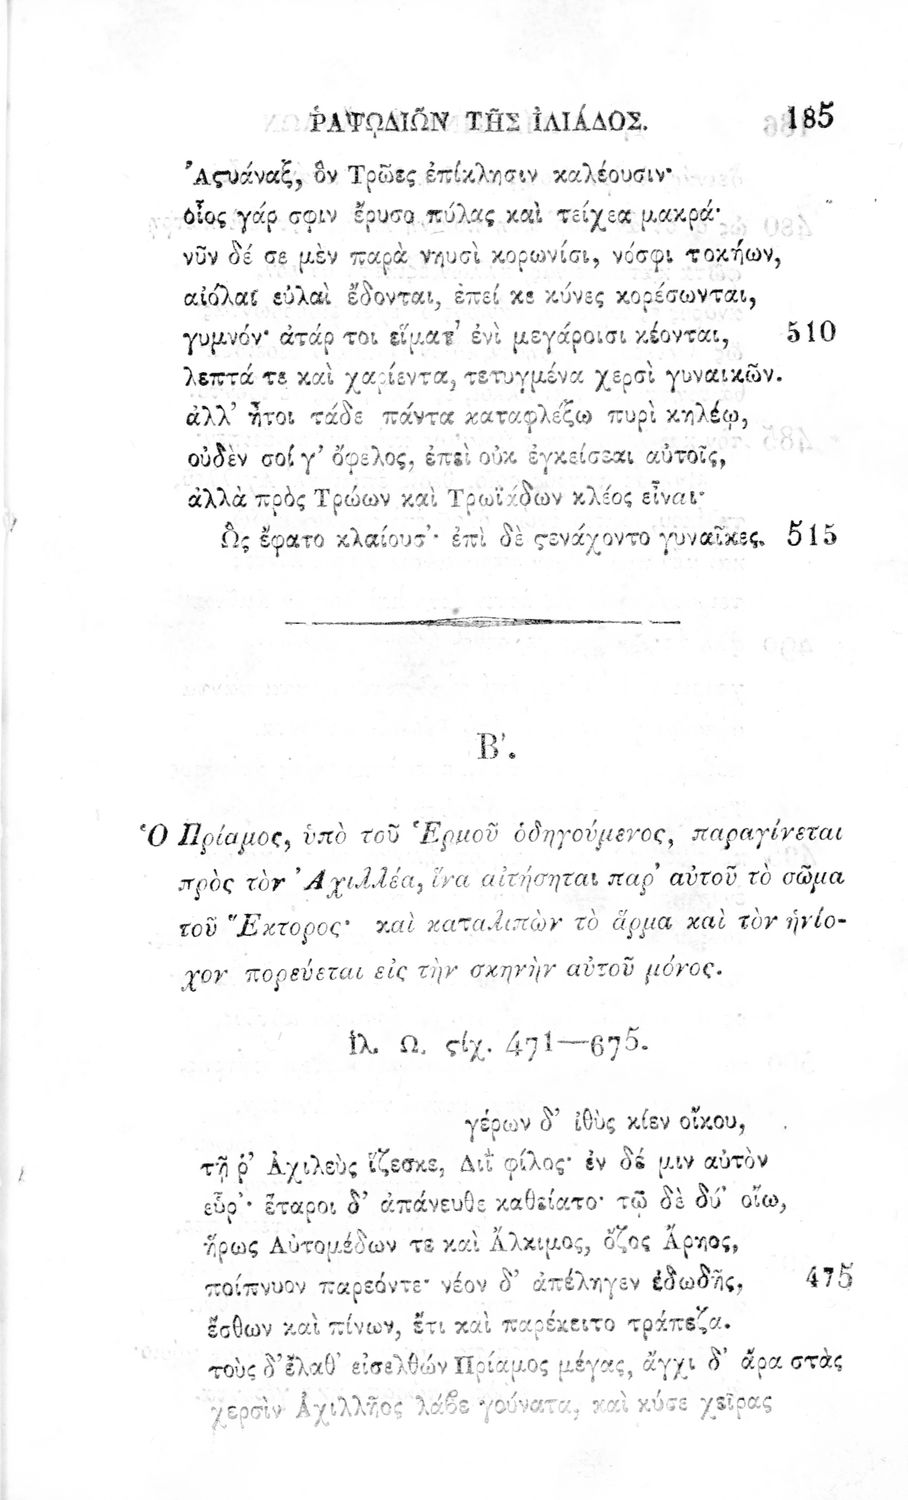 ῬΑΨΩΔΙῶΝ ΤῆΣ ἸΛΙΆΔΟΣ. 185
Ἀϛυάναξ, ὃν Τρῶες ἐπίκλησιν καλέουσιν·
οἶος γάρ σφιν ἔρυσο πύλας καὶ τείχεα μακρά·
νῦν δέ σε μὲν παρὰ νηυσὶ κορωνίσι, νόσφι τοκήων,
αἰόλαι εὐλαὶ ἔδονται, ἐπεί κε κύνες κορέσωνται,
γυμνόν· ἀτάρ τοι εἵματ’ ἐνὶ μεγάροισι κέονται, 510
λεπτά τε καὶ χαρίεντα, τετυγμένα χερσὶ γυναικῶν.
ἀλλ’ ἤτοι τάδε πάντα καταφλέξω πυρὶ κηλέῳ,
οὐδὲν σοί γ’ ὄφελος, ἐπεὶ οὐκ ἐγκείσεαι αὐτοῖς,
ἀλλὰ πρὸς Τρώων καὶ Τρωϊάδων κλέος εἶναι·
Ὣς ἔφατο κλαίουσ’· ἐπὶ δὲ ϛενάχοντο γυναῖκες. 515
Β’.
Ὁ Πρίαμος, ὑπὸ τοῦ Ἑρμοῦ ὁδηγούμενος, παραγίνεται
πρὸς τὸν Ἀχιλλέα, ἵνα αἰτήσηται παρ’ αὐτοῦ τὸ σῶμα
τοῦ Ἕκτορος· καὶ καταλιπὼν τὸ ἅρμα καὶ τὸν ἡνίο-
χον πορεύεται εἰς τὴν σκηνὴν αὐτοῦ μόνος.
Ἰλ. Ω. ϛίχ. 471—675.
γέρων δ’ ἰθὺς κίεν οἴκου,
τῇ ῥ’ Ἀχιλεὺς ἵζεσκε, Διῒ φίλος· ἐν δέ μιν αὐτὸν
εὗρ’· ἕταροι δ’ ἀπάνευθε καθείατο· τῶ δὲ δύ’ οἴω,
ἥρως Αὐτομέδων τε καὶ Ἄλκιμος, ὄζος Ἄρηος,
ποίπνυον παρεόντε· νέον δ’ ἀπέληγεν ἐδωδῆς, 475
ἔσθων καὶ πίνων, ἔτι καὶ παρέκειτο τράπεζα.
τοὺς δ’ ἔλαθ’ εἰσελθὼν Πρίαμος μέγας, ἄγχι δ’ ἄρα στὰς
χερσὶν Ἀχιλλῆος λάβε γούνατα, καὶ κύσε χεῖρας